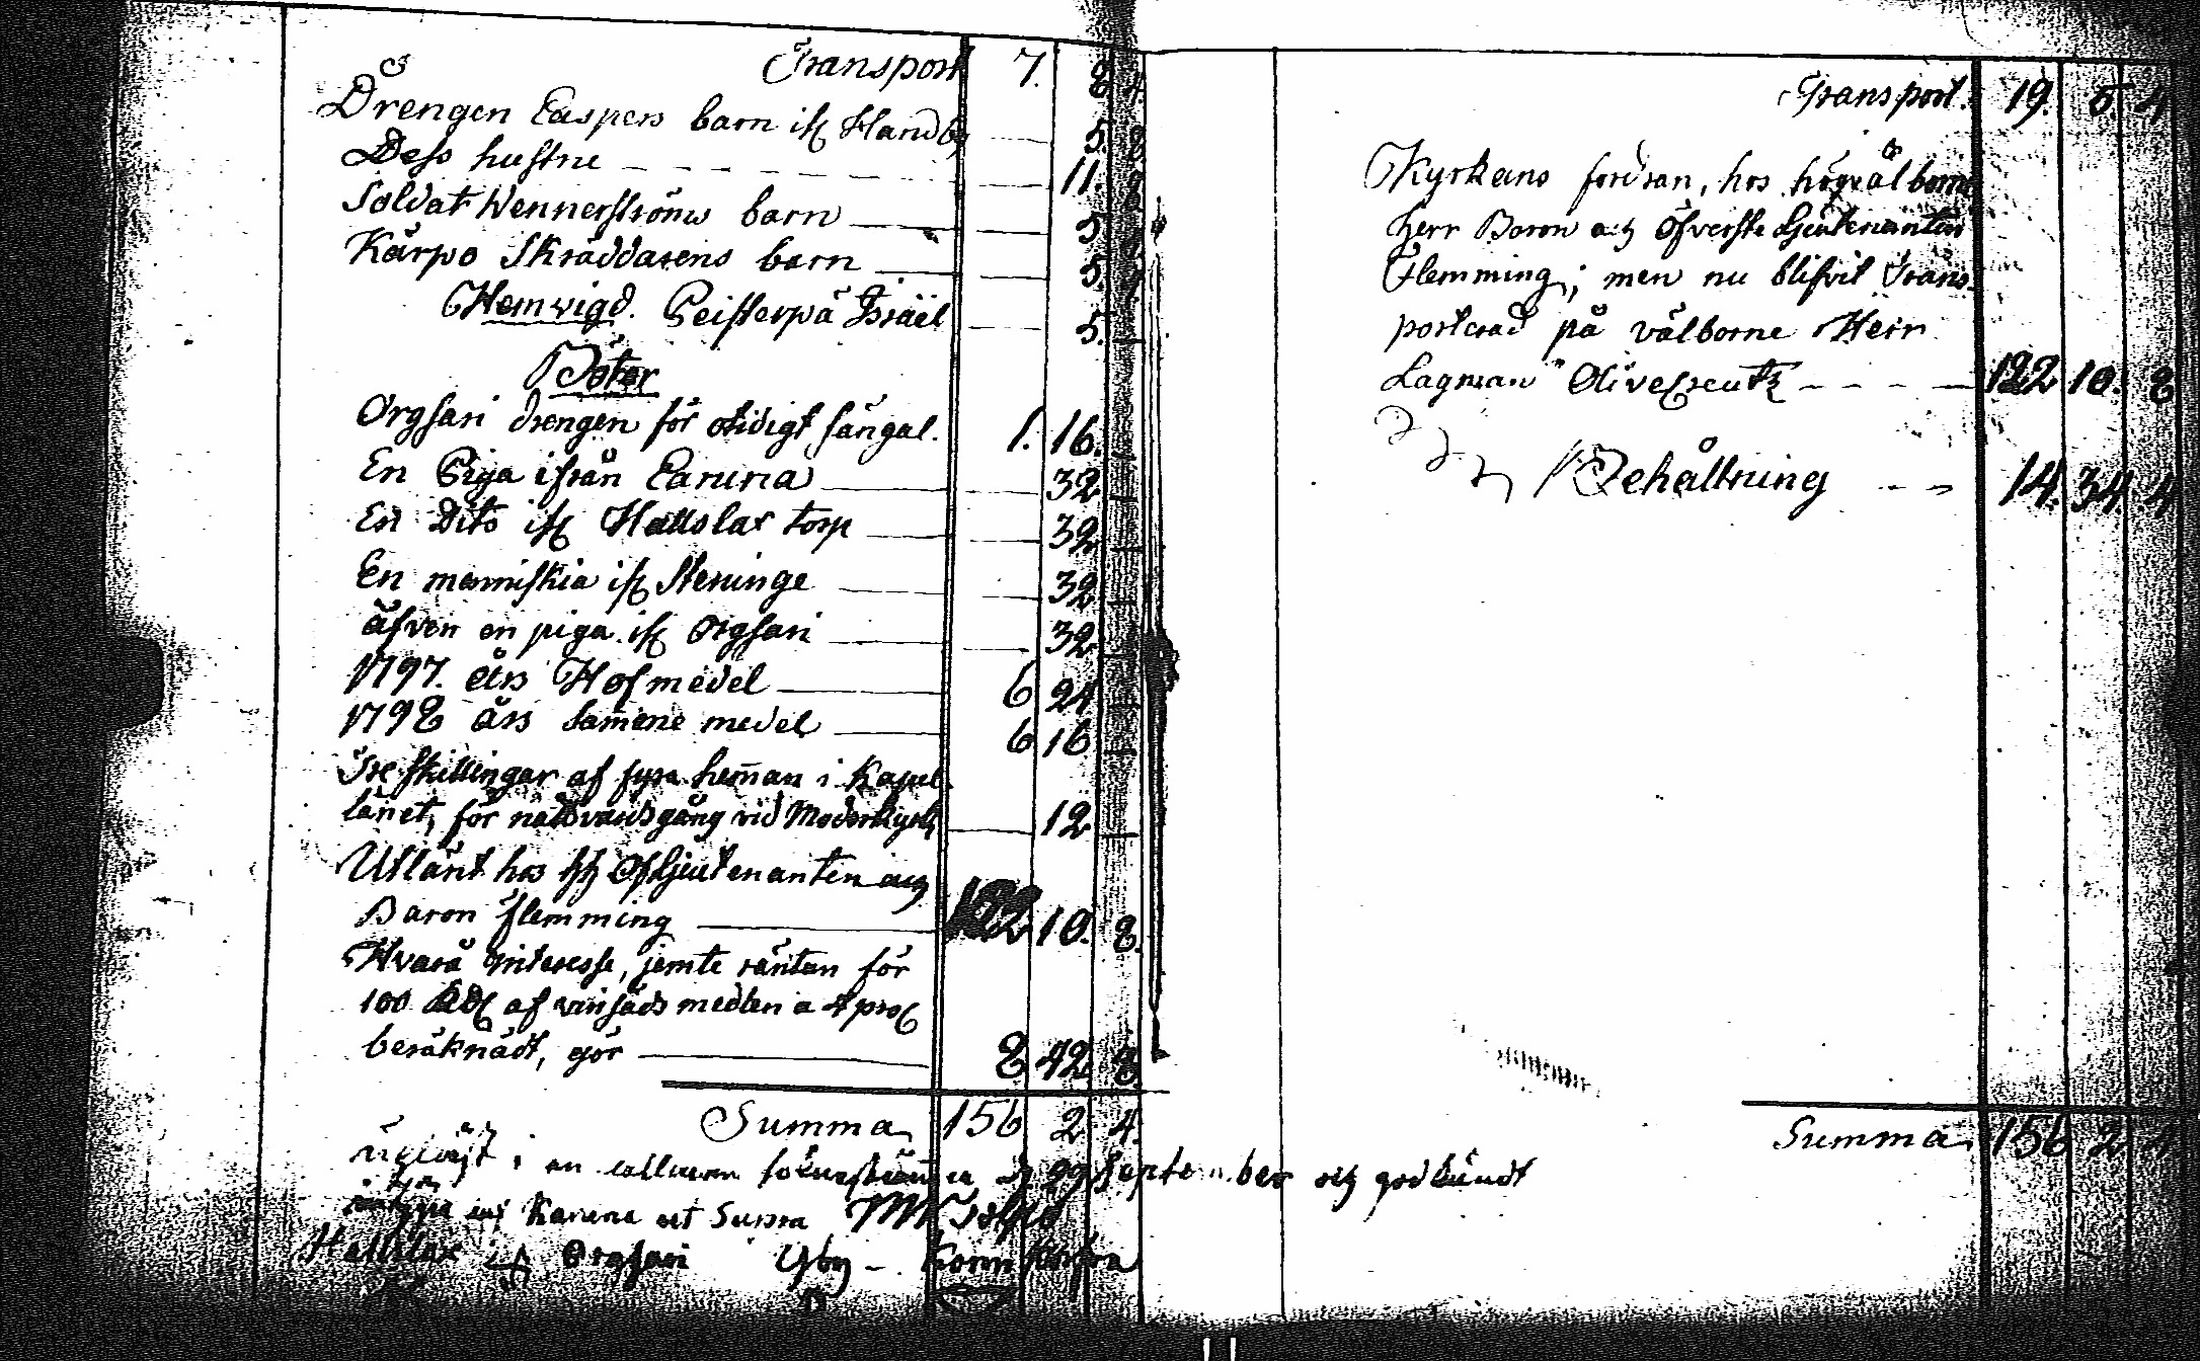 Transport 7. 8 4.
Drengen Caspers barn ifr Handby 5. 8
Dess hustru 11. 8
Soldat Wennerströms barn 5
Karpo Skräddarens barn 5.
Hemvigd. Peisterpä Israel 5.
Böter
Orgsari drengen för otidigt sängal. 1. 16.
En Piga ifrån Caruna 32
En Dito ifr Hallslax torp 32
En menniskia ifr Steninge 32
äfven en piga ifr Orgsari 32
1797. års Hofmedel 6 24
1798 års samme medel 6 16
Tre skillingar af fyra heman i Kapel
länet, för nattvardsgång vid Moderkyrk 12
Utlänt hos Öfljeutenanten och
Baron Flemming 122 10. 8.
Hvara interesse, jemte räntan för
100 Rdr af vinsäds medlen a 4 proc
beräknadt, gör 8 42 8
Summa 156 2 4.
i en 29 September och godkändt
Karuna ut Supra
Hallslax Orgsari Yby
Transport. 19. 5 4
Kyrkans fordran, hos högvälborne
herr Baron och Öfverste Ljeutenanten
Flemming; men nu blifvit trans-
porterad på välborne Herr
Lagman Olivecreutz 122 10. 8
Behållning 14. 34. 4
Summa 156 2 4